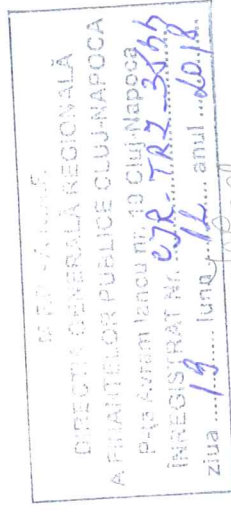 DIRECȚIA GENERALĂ REGIONALĂ
A FINANȚELOR PUBLICE CLUJ-NAPOCA
P-ța Avram Iancu nr. 19 Cluj-Napoca
ÎNREGISTRAT Nr. CJR-TRZ-
ziua 19 luna 12 anul 2018